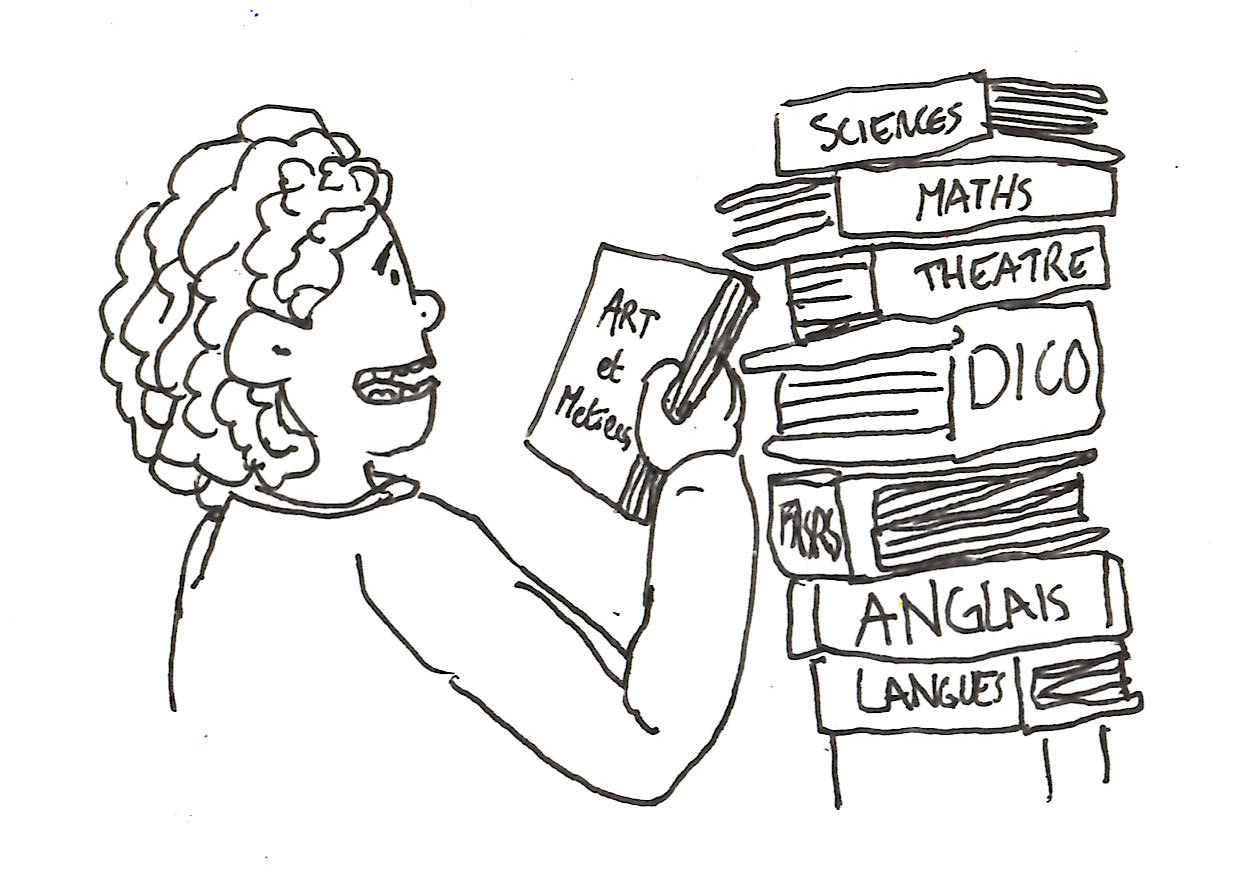 SCIENCES
MATHS
THEATRE
ART
et
Metiers
DICO
ANGLAIS
LANGUES